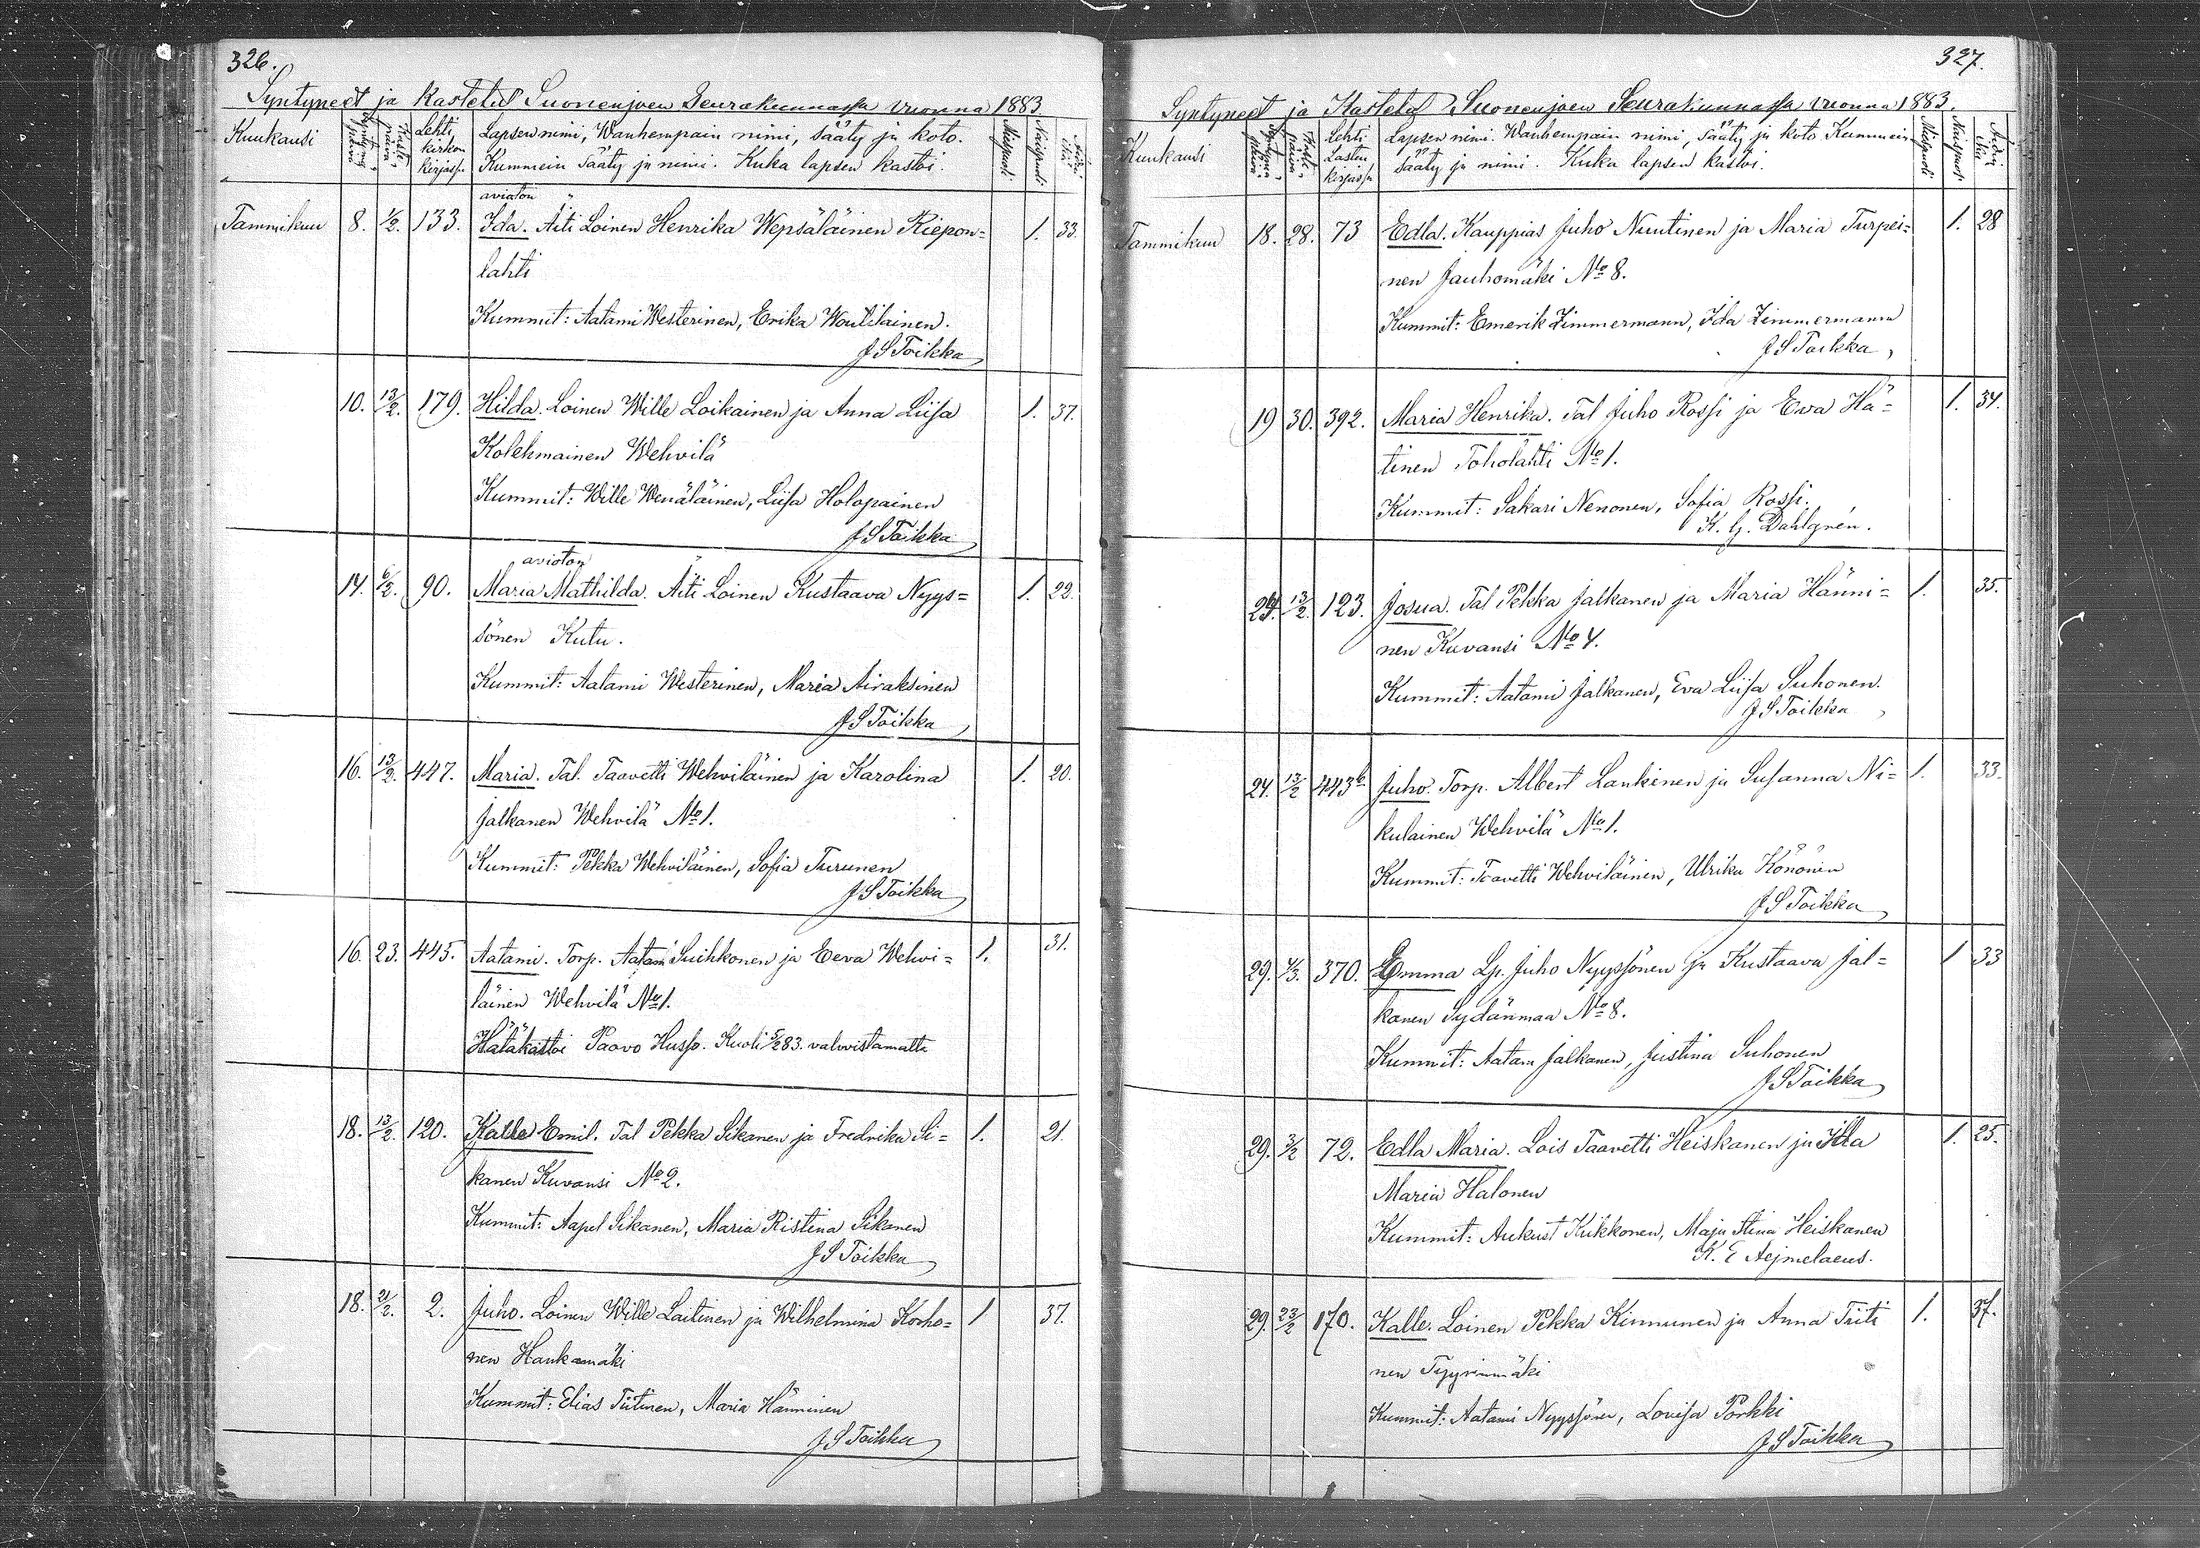 326.
Syntyneet ja kastetut Suonenjoen Seurakunnassa vuonna 1883.
Kuukausi Lehti kirkon kirjassa Lapsen nimi, Wanhempain nimi, sääty ja koto. Miespuoli Naispuoli
Kummein sääty ja nimi. Kuka lapsen kastoi.
avioton
Tammikuu 8. 1/2. 133. Ida. Äiti Loinen Henrika Wepsäläinen Kiepon= 1. 33.
lahti
Kummit: Aatami Westerinen, Erika Woutilainen.
J S Toikka
10. 13/2. 179. Hilda. Loinen Wille Loikainen ja Anna Liisa 1. 37.
Kolehmainen Wehvilä
Kummit: Wille Wenäläinen, Liisa Holopainen
J S Toikka
avioton
14. 6/2. 90. Maria Mathilda. Äiti Loinen Kustaava Nyys= 1. 22.
sönen Kutu.
Kummit: Aatami Westerinen, Maria Airaksinen
J S Toikka
16. 13/2. 447. Maria. Tal. Taavetti Wehviläinen ja Karolina 1. 20.
Jalkanen Wehvilä No 1.
Kummit: Pekka Wehviläinen, Sofia Turunen
J S Toikka
16. 23. 445. Aatami. Torp. Aatam Suihkonen ja Eeva Wehvi= 1. 31.
läinen Wehvilä No 1.
Hätäkastoi Paavo Husso. Kuoli 5/2 83. vahvistamatta
18. 13/2. 120. Kalle Emil. Tal Pekka Sikanen ja Fredrika Si= 1. 21.
kanen Kuvansi No 2.
Kummit: Aapel Sikanen, Maria Ristina Sikanen
J S Toikka
18. 21/2. 2. Juho. Loinen Wille Laitinen ja Wilhelmina Korho= 1 37.
nen Hankamäki
Kummit: Elias Tiitinen, Maria Hänninen
J S Toikka
327.
Syntyneet ja Kastetut Suonenjoen Seurakunnassa vuonna 1883.
Kuukausi Lehti Lasten kirjassa Lapsen nimi. Wanhempain nimi, sääty ja koto. Kummein Miespuoli Naispuoli
sääty ja nimi. Kuka lapsen kastoi.
Tammikuu 18. 28. 73 Edla. Kauppias Juho Nuutinen ja Maria Turpei= 1. 28
nen Jauhomäki No 8.
Kummit: Emerik Zimmermann, Ida Zimmermann
J S Toikka
19 30. 392. Maria Henrika. Tal Juho Rossi ja Ewa Hä= 1. 34.
tinen Toholahti No 1.
Kummit: Sakari Nenonen, Sofia Rossi.
K. G. Dahlgrén.
24. 13/2. 123. Josua. Tal Pekka Jalkanen ja Maria Hänni= 1. 35.
nen Kuvansi No 4.
Kummit: Aatami Jalkanen, Eva Liisa Suhonen.
J S Toikka
24. 13/2 443b Juho. Torp. Albert Lankinen ja Susanna Ni= 1. 33.
kulainen Wehvilä No 1.
Kummit: Taavetti Wehviläinen, Ulrika Könönen
J S Toikka
29. 4/3. 370. Emma Lp. Juho Nyyssönen ja Kustaava Jal= 1 33
kanen Sydänmaa No 8.
Kummit: Aatam Jalkanen, Justina Suhonen
J S Toikka
29. 3/2 72. Edla Maria. Lois Taavetti Heiskanen ja Ida 1. 25.
Maria Halonen
Kummit: Aukust Kukkonen, Maja Stina Heiskanen
K. E Aejmelaeus.
29. 23/2 170. Kalle. Loinen Pekka Kinnunen ja Anna Tiiti 1. 37.
nen Tyyrinmäki
Kummit: Aatami Nyyssönen, Lovisa Pörkki
J S Toikka